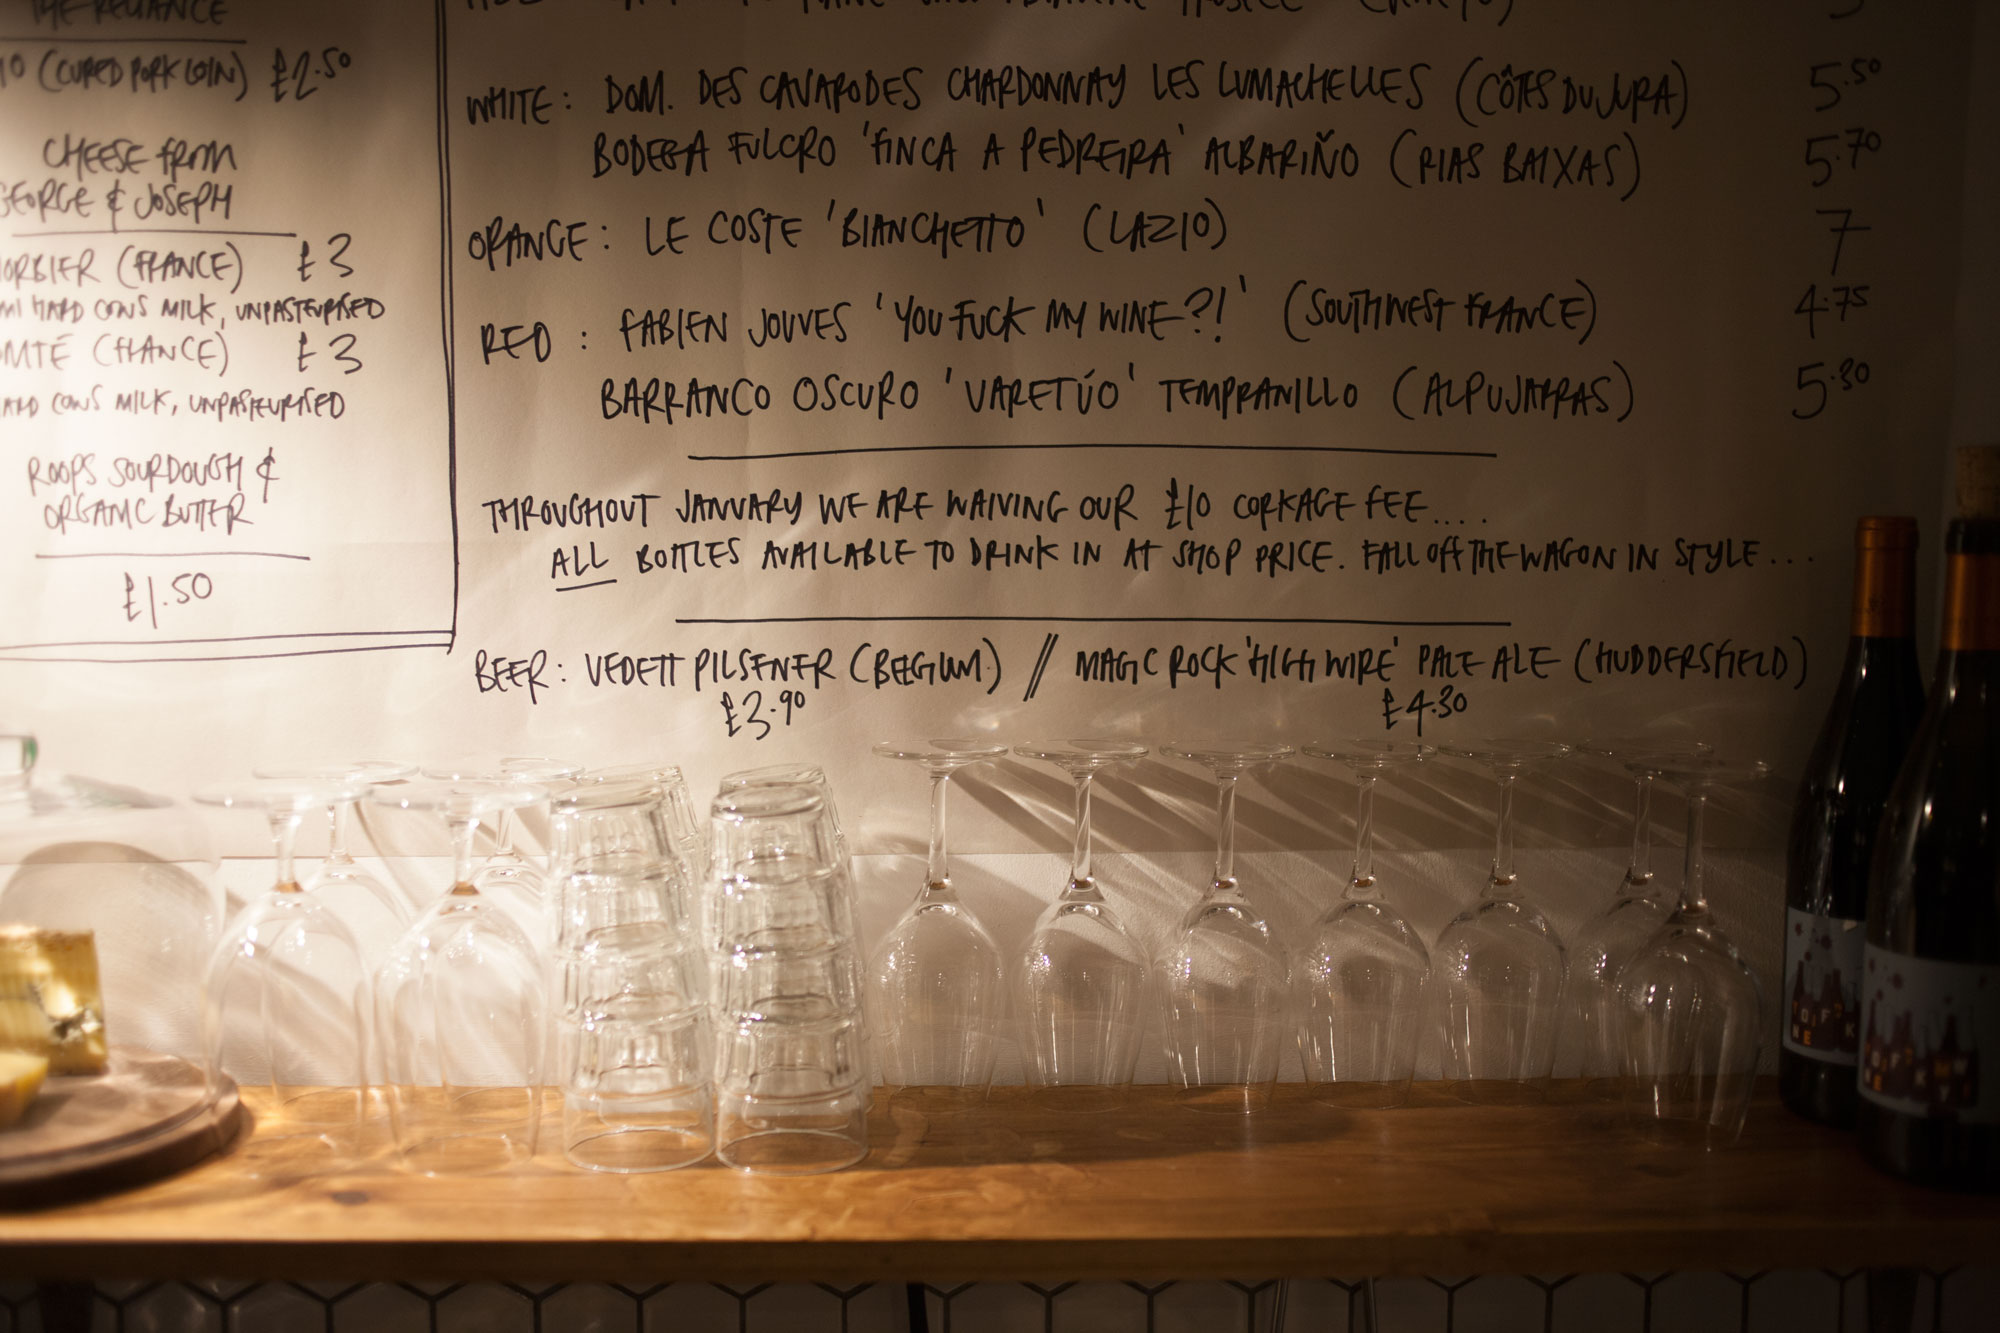 THE RELIANCE
(CURED PORK LOIN) £2.50
CHEESE FROM
GEORGE & JOSEPH
MORBIER (FRANCE) £3
HARD COWS MILK, UNPASTEURISED
COMTÉ (FRANCE) £3
HARD COWS MILK, UNPASTEURISED
ROOPS SOURDOUGH &
ORGANIC BUTTER
£1.50
WHITE: DOM. DES CAVARODES CHARDONNAY LES LUMACHELLES (CÔTES DU JURA) 5.50
BODEGA FULCRO 'FINCA A PEDREIRA' ALBARIÑO (RIAS BAIXAS) 5.70
ORANGE: LE COSTE 'BIANCHETTO' (LAZIO) 7
RED: FABIEN JOUVES 'YOU FUCK MY WINE?!' (SOUTHWEST FRANCE) 4.75
BARRANCO OSCURO 'VARETÚO' TEMPRANILLO (ALPUJARRAS) 5.30
THROUGHOUT JANUARY WE ARE WAIVING OUR £10 CORKAGE FEE....
ALL BOTTLES AVAILABLE TO DRINK IN AT SHOP PRICE. FALL OFF THE WAGON IN STYLE...
BEER: VEDETT PILSENER (BELGIUM) // MAGIC ROCK 'HIGH WIRE' PALE ALE (HUDDERSFIELD)
£3.90 £4.30